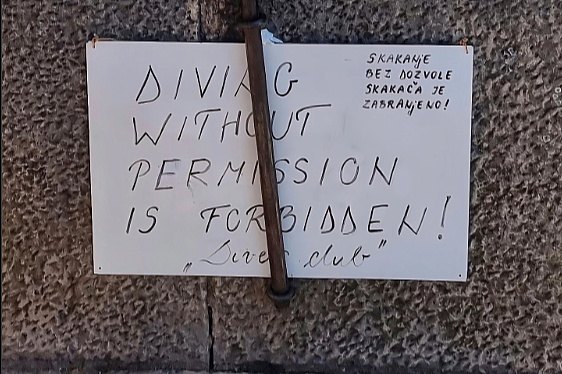 DIVING
WITHOUT
PERMISSION
IS FORBIDDEN!
„Divers club”
SKAKANJE
BEZ DOZVOLE
SKAKAČA JE
ZABRANJENO!